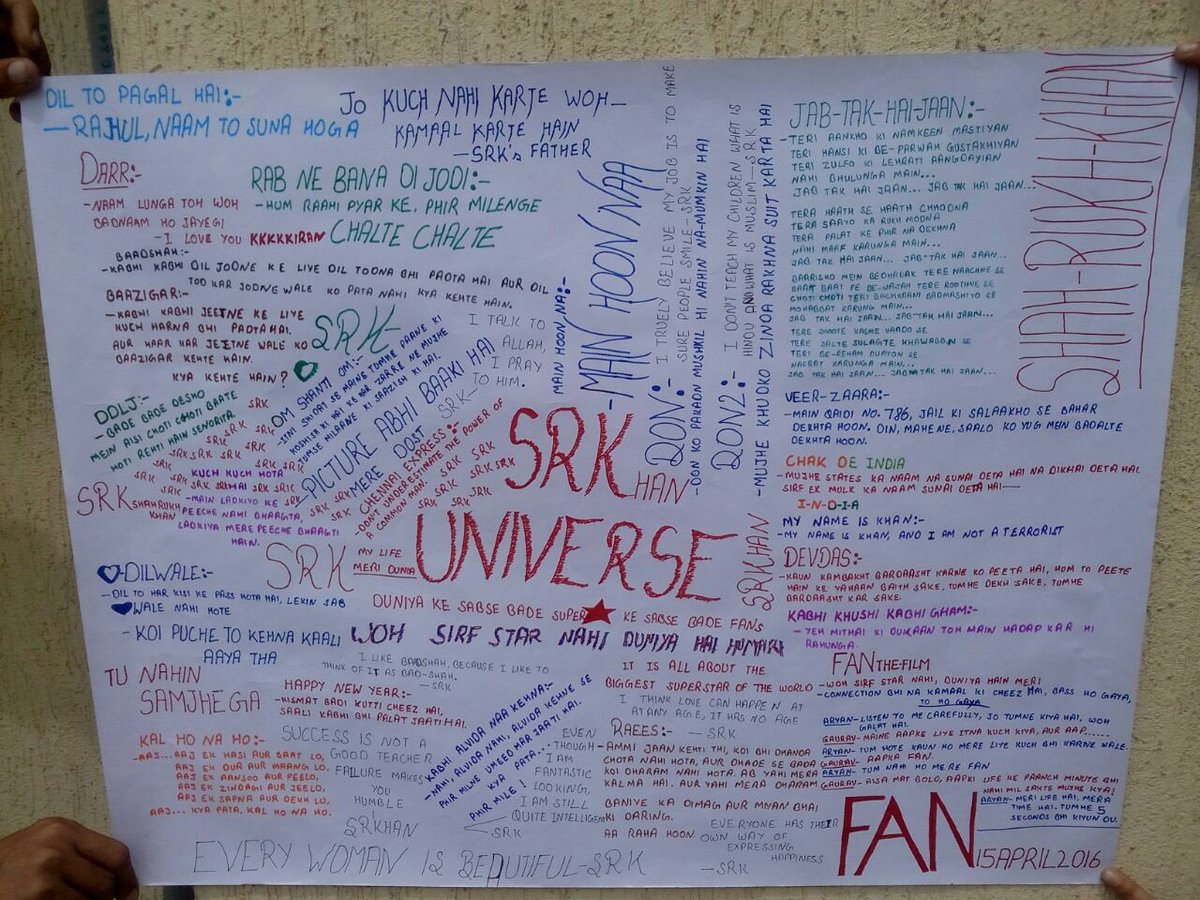 DIL TO PAGAL HAI:-
- RAHUL, NAAM TO SUNA HOGA
JO KUCH NAHI KARTE WOH -
KAMAAL KARTE HAIN
- SRK's FATHER
DARR:-
- NAAM LUNGA TOH WOH
BADNAAM HO JAYEGI
- I LOVE YOU KKKKKIRAN
RAB NE BANA DI JODI:-
- HUM RAAHI PYAR KE, PHIR MILENGE
CHALTE CHALTE
BAADSHAH:-
- KABHI KABHI DIL JODNE KE LIYE DIL TODNA BHI PADTA HAI AUR DIL
TOD KAR JODNE WALE KO PATA NAHI KYA KEHTE HAIN.
BAAZIGAR:-
- KABHI KABHI JEETNE KE LIYE
KUCH HARNA BHI PADTA HAI.
AUR HAAR KAR JEETNE WALE KO
BAAZIGAR KEHTE HAIN.
KYA KEHTE HAIN?
SRK-
I TALK TO
ALLAH,
I PRAY
TO HIM.
SRK-
OM SHANTI OM:-
- ITNI SHIDAT SE MAINE TUMHE PAANE KI
KOSHISH KI HAI KE HAR ZARRE NE MUJHE
TUMSE MILAANE KI SAAZISH KI HAI.
- PICTURE ABHI BAAKI HAI
MERE DOST
CHENNAI EXPRESS:-
- DON'T UNDERESTIMATE THE POWER OF
A COMMON MAN.
DDLJ:-
- BADE BADE DESHO
MEIN AISI CHOTI CHOTI BAATE
HOTI REHTI HAIN SENORITA.
SRK
SRK SRK
SRK SRK
SRK SRK SRK
KUCH KUCH HOTA
HAI
- MAIN LADKIYO KE
PEECHE NAHI BHAAGTA,
LADKIYA MERE PEECHE BHAAGTI
HAIN.
SRK SHAHRUKH
KHAN
MAIN HOON, NA:-
- MAIN HOON NAA
I TRUELY BELIEVE MY JOB IS TO MAKE
SURE PEOPLE SMILE - SRK
DON:-
- DON KO PAKADN MUSHKIL HI NAHIN NA-MUMKIN HAI
I DON'T TEACH MY CHILDREN WHAT IS
HINDU AND WHAT IS MUSLIM - SRK
DON2:-
- MUJHE KHUDKO ZINDA RAKHNA SUIT KARTA HAI
SRKHAN
UNIVERSE
SRKHAN
SRK MY LIFE
MERI DUNIA
DUNIYA KE SABSE BADE SUPER ★ KE SABSE BADE FANS
WOH SIRF STAR NAHI DUNIYA HAI HUMARI
JAB-TAK-HAI-JAAN:-
- TERI AANKHO KI NAMKEEN MASTIYAN
TERI HANSI KI BE-PARWAH GUSTAKHIYAN
TERI ZULFO KI LEHRATI AANGDAYIAN
NAHI BHULUNGA MAIN...
JAB TAK HAI JAAN... JAB TAK HAI JAAN...
TERA HAATH SE HAATH CHHODNA
TERA SAAYO KA RUKH MODNA
TERA PALAT KE PHIR NA DEKHNA
NAHI MAAF KARUNGA MAIN...
JAB TAK HAI JAAN... JAB-TAK HAI JAAN...
BAARISHO MEIN BEDHADAK TERE NAACHNE SE
BAAT BAAT PE BE-WAJAH TERE ROOTHNE SE
CHOTI CHOTI TERI BACHKANI BADMASHIYO SE
MOHABBAT KARUNG MAIN...
JAB TAK HAI JAAN... JAB-TAK HAI JAAN...
TERE JHOOTE KASME VAADO SE
TERE JALTE SULAGTE KHAWABON SE
TERI BE-REHAM DUAYON SE
NAFRAT KARUNGA MAIN...
JAB TAK HAI JAAN... JAB TAK HAI JAAN...
SHAH-RUKH-KHAN
VEER-ZAARA:-
- MAIN QAIDI NO. 786, JAIL KI SALAAKHO SE BAHAR
DEKHTA HOON. DIN, MAHENE, SAALO KO YUG MEIN BADALTE
DEKHTA HOON.
CHAK DE INDIA
- MUJHE STATES KA NAAM NA SUNAI DETA HAI NA DIKHAI DETA HAI.
SIRF EK MULK KA NAAM SUNAI DETA HAI -
I-N-D-I-A
MY NAME IS KHAN:-
- MY NAME IS KHAN, AND I AM NOT A TERRORIST
DEVDAS:-
- KAUN KAMBAKHT BARDAASHT KARNE KO PEETA HAI, HUM TO PEETE
HAIN KE YAHAAN BAITH SAKE, TUMHE DEKH SAKE, TUMHE
BARDAASHT KAR SAKE.
KABHI KHUSHI KABHI GHAM:-
- YEH MITHAI KI DUKAAN TOH MAIN HADAP KAR HI
RAHUNGA.
DILWALE:-
- DIL TO HAR KISI KE PASS HOTA HAI, LEKIN SAB
WALE NAHI HOTE
- KOI PUCHE TO KEHNA KAALI
AAYA THA
I LIKE BADSHAH, BECAUSE I LIKE TO
THINK OF IT AS BAD-SHAH.
- SRK
TU NAHIN
SAMJHEGA
HAPPY NEW YEAR:-
- KISMAT BADI KUTTI CHEEZ HAI,
SAALI KABHI BHI PALAT JAATI HAI.
KAL HO NA HO:-
- AAJ... AAJ EK HASI AUR BAAT LO,
AAJ EK DUA AUR MAANG LO,
AAJ EK AANSOO AUR PEELO,
AAJ EK ZINDAGI AUR JEELO,
AAJ EK SAPNA AUR DEKH LO,
AAJ... KYA PATA, KAL HO NA HO.
SUCCESS IS NOT A
GOOD TEACHER
FAILURE MAKES
YOU
HUMBLE
- SRKHAN
KABHI ALVIDA NAA KEHNA:-
- NAHI, ALVIDA NAHI, ALVIDA KEHNE SE
PHIR MILNE UMEED MAR JAATI HAI.
KYA PATA...
PHIR MILE!
EVEN
THOUGH
I AM
FANTASTIC
LOOKING,
I AM STILL
QUITE INTELLIGENT
- SRK
IT IS ALL ABOUT THE
BIGGEST SUPERSTAR OF THE WORLD
I THINK LOVE CAN HAPPEN AT
AT ANY AGE, IT HAS NO AGE
- SRK
RAEES:-
- AMMI JAAN KEHTI THI, KOI BHI DHANDA
CHOTA NAHI HOTA, AUR DHADE SE BADA
KOI DHARAM NAHI HOTA. AB YAHI MERA
KALMA HAI. AUR YAHI MERA DHARAM
BANIYE KA DIMAG AUR MIYAN BHAI
KI DARING.
AA RAHA HOON.
EVERYONE HAS THEIR
OWN WAY OF
EXPRESSING
HAPPINESS
- SRK
FAN THE-FILM
- WOH SIRF STAR NAHI, DUNIYA HAIN MERI
- CONNECTION BHI NA KAMAAL KI CHEEZ HAI, BASS HO GAYA,
TO HO GAYA
ARYAN- LISTEN TO ME CAREFULLY, JO TUMNE KIYA HAI, WOH
GALAT HAI.
GAURAV- MAINE AAPKE LIYE ITNA KUCH KIYA, AUR AAP......
ARYAN- TUM HOTE KAUN HO MERE LIYE KUCH BHI KARNE WALE.
GAURAV- AAPKA FAN.
ARYAN- TUM NAHI HO MERE FAN
GAURAV- AISA MAT BOLO, AAPKI LIFE KE PAANCH MINUTE BHI
NAHI MIL SAKTE MUJHE KYA!
ARYAN- MERI LIFE HAI, MERA
TIME HAI. TUMHE 5
SECONDS BHI KIYUN DU.
FAN 15 APRIL 2016
EVERY WOMAN IS BEAUTIFUL - SRK